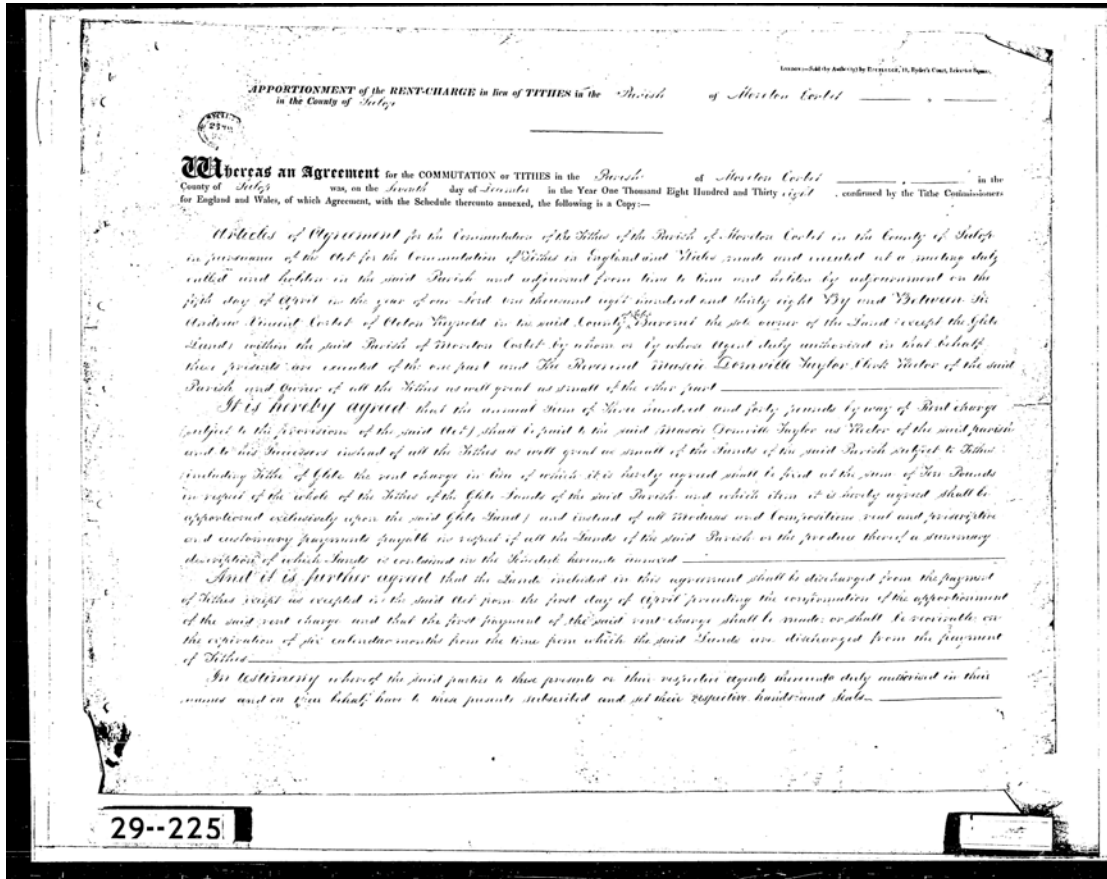 London:—Sold (by Authority) by 
APPORTIONMENT of the RENT-CHARGE in lieu of TITHES in the Parish of Moreton Corbet
in the County of Salop
Whereas an Agreement for the COMMUTATION or TITHES in the Parish of Moreton Corbet in the
County of Salop was, on the Seventh day of in the Year One Thousand Eight Hundred and Thirty eight, confirmed by the Tithe Commissioners
for England and Wales, of which Agreement, with the Schedule thereunto annexed, the following is a Copy:—
Articles of Agreement for the Commutation of the Tithes of the Parish of Moreton Corbet in the County of Salop
in pursuance of the Act for the Commutation of Tithes in England and Wales made and executed at a meeting duly
called and holden in the said Parish and adjourned from time to time and holden by adjournment on the
fifth day of April in the year of our Lord one thousand eight hundred and thirty eight By and Between Sir
Andrew Vincent Corbet of Acton Reynold in the said County of Salop Baronet the sole owner of the Land (except the Glebe
Land) within the said Parish of Moreton Corbet by whom or by whose Agent duly authorised in that behalf
these presents are executed of the one part and The Reverend Mascie Domville Taylor Clerk Rector of the said
Parish and Owner of all the Tithes as well great as small of the other part
It is hereby agreed that the annual Sum of Three hundred and forty pounds by way of Rent charge
(subject to the provisions of the said Act) shall be paid to the said Mascie Domville Taylor as Rector of the said parish
and to his Successors instead of all the Tithes as well great as small of the Lands of the said Parish subject to Tithes
(including Tithe of Glebe the rent charge in lieu of which it is hereby agreed shall be fixed at the sum of Ten Pounds
in respect of the whole of the Tithes of the Glebe Lands of the said Parish and which item it is hereby agreed shall be
apportioned exclusively upon the said Glebe Land) and instead of all Moduses and Compositions real and prescriptive
and customary payments payable in respect of all the Lands of the said Parish or the produce thereof a summary
description of which Lands is contained in the Schedule hereunto annexed
And it is further agreed that the Lands included in this agreement shall be discharged from the payment
of Tithes except as excepted in the said Act from the first day of April preceding the confirmation of the apportionment
of the said rent charge and that the first payment of the said rent charge shall be made or shall be recoverable on
the expiration of six calendar months from the time from which the said Lands are discharged from the payment
of Tithes
In testimony whereof the said parties to these presents or their respective Agents thereunto duly authorised in their
names and on their behalf have to these presents subscribed and set their respective hands and Seals
29--225